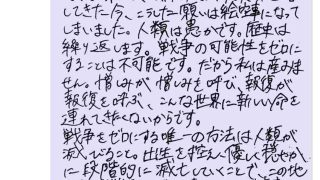 してきた今、こうした願いは絵空事になって
しまいました。人類は愚かです。歴史は
繰り返します。戦争の可能性をゼロに
することは不可能です。だから私は産みま
せん。憎しみが憎しみを呼び、報復が
報復を呼ぶ、こんな世界に新しい命を
連れてきたくないからです。
戦争をゼロにする唯一の方法は人類が
滅びること。出生を控え優しく穏やか
に段階的に滅亡していくことで、この地